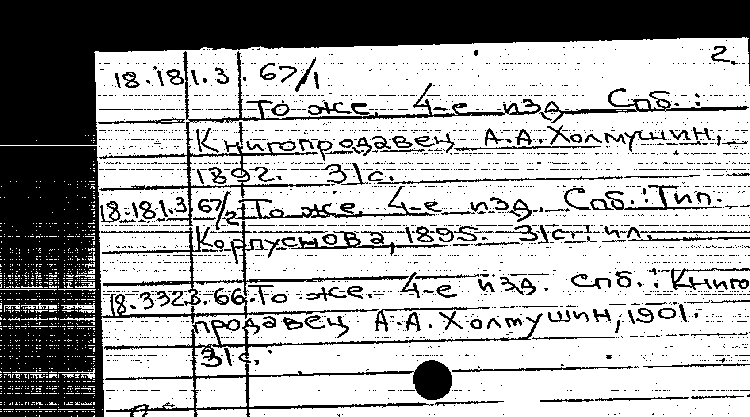 2.
18.181.3.67/1
То же. 4-е изд. Спб.:
Книгопродавец А.А.Холмушин,
1892. 31с.
18.181.3.67/2 То же. 4-е изд. Спб.: Тип.
Корпуснова, 1895. 31с.: ил.
18.3323.66. То же. 4-е изд. Спб.: Книго
продавец А.А.Холмушин, 1901.
31с.